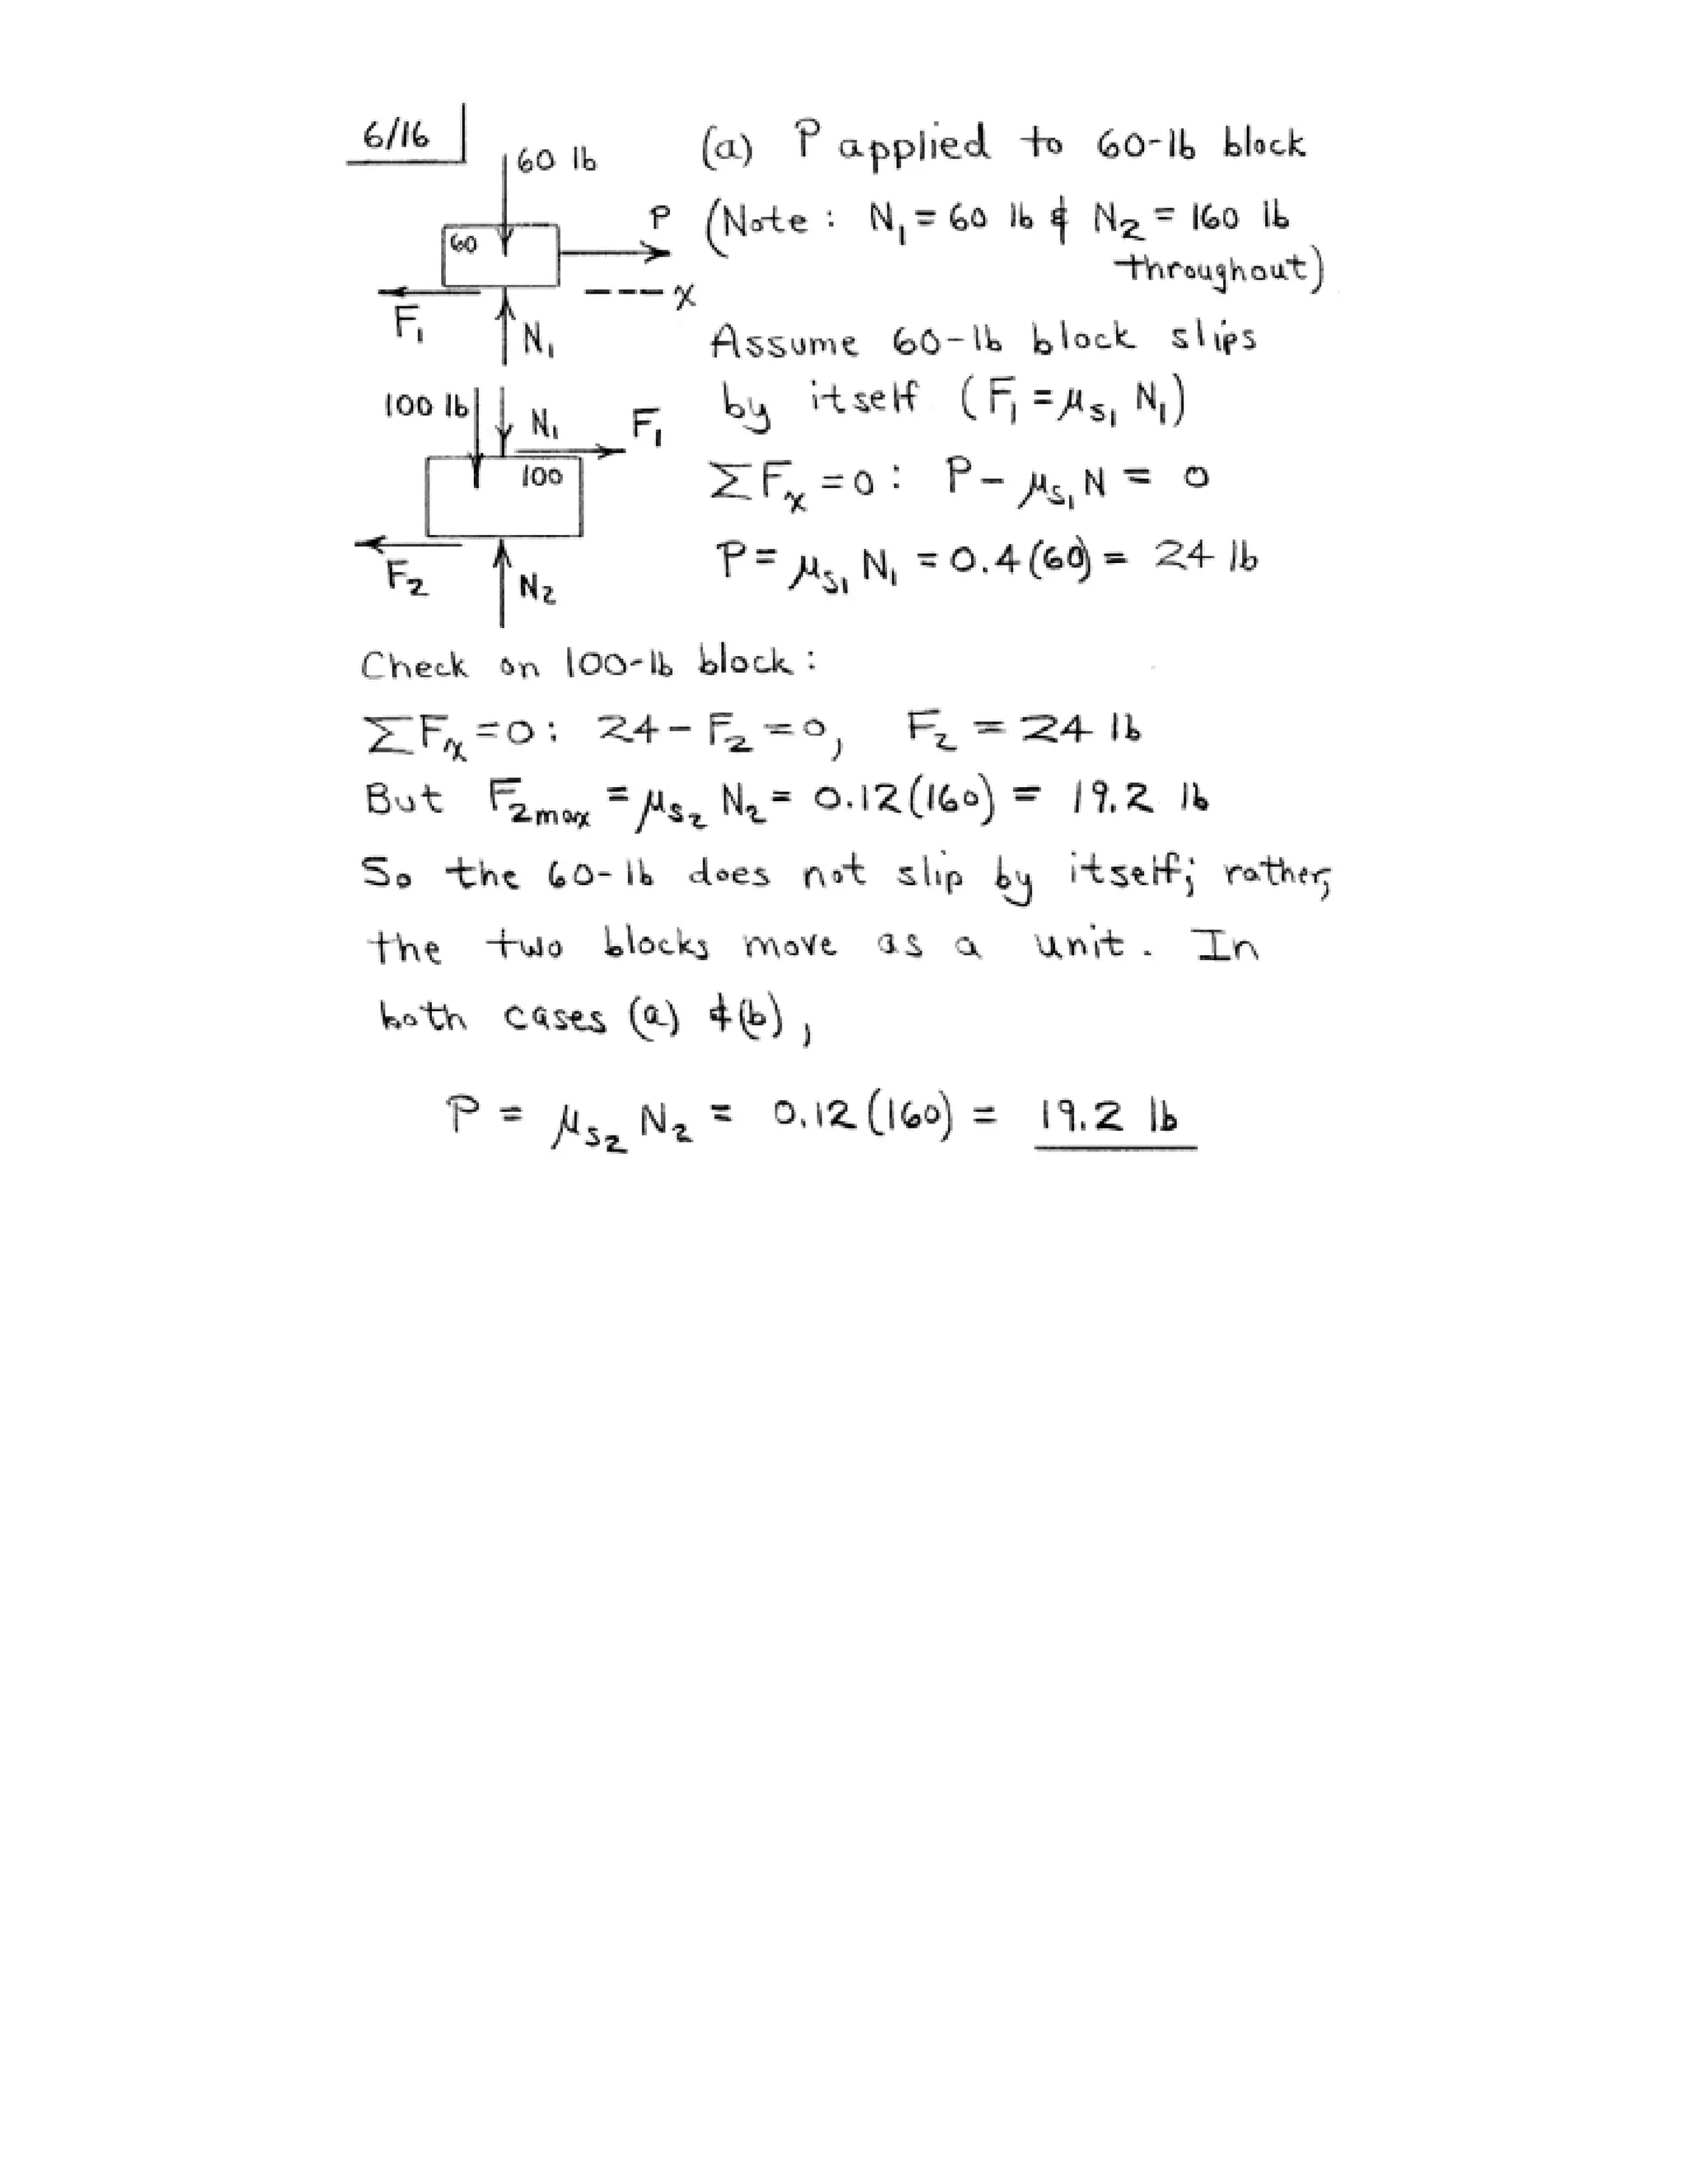 6/16
60 lb
60
P
F₁
N₁
x
100 lb
N₁
F₁
100
F₂
N₂
(a) P applied to 60-lb block
(Note: N₁ = 60 lb & N₂ = 160 lb
throughout)
Assume 60-lb block slips
by itself (F₁ = μs₁ N₁)
ΣFₓ = 0: P - μs₁ N = 0
P = μs₁ N₁ = 0.4(60) = 24 lb
Check on 100-lb block:
ΣFₓ = 0: 24 - F₂ = 0, F₂ = 24 lb
But F₂max = μs₂ N₂ = 0.12(160) = 19.2 lb
So the 60-lb does not slip by itself; rather,
the two blocks move as a unit. In
both cases (a) & (b),
P = μs₂ N₂ = 0.12(160) = 19.2 lb